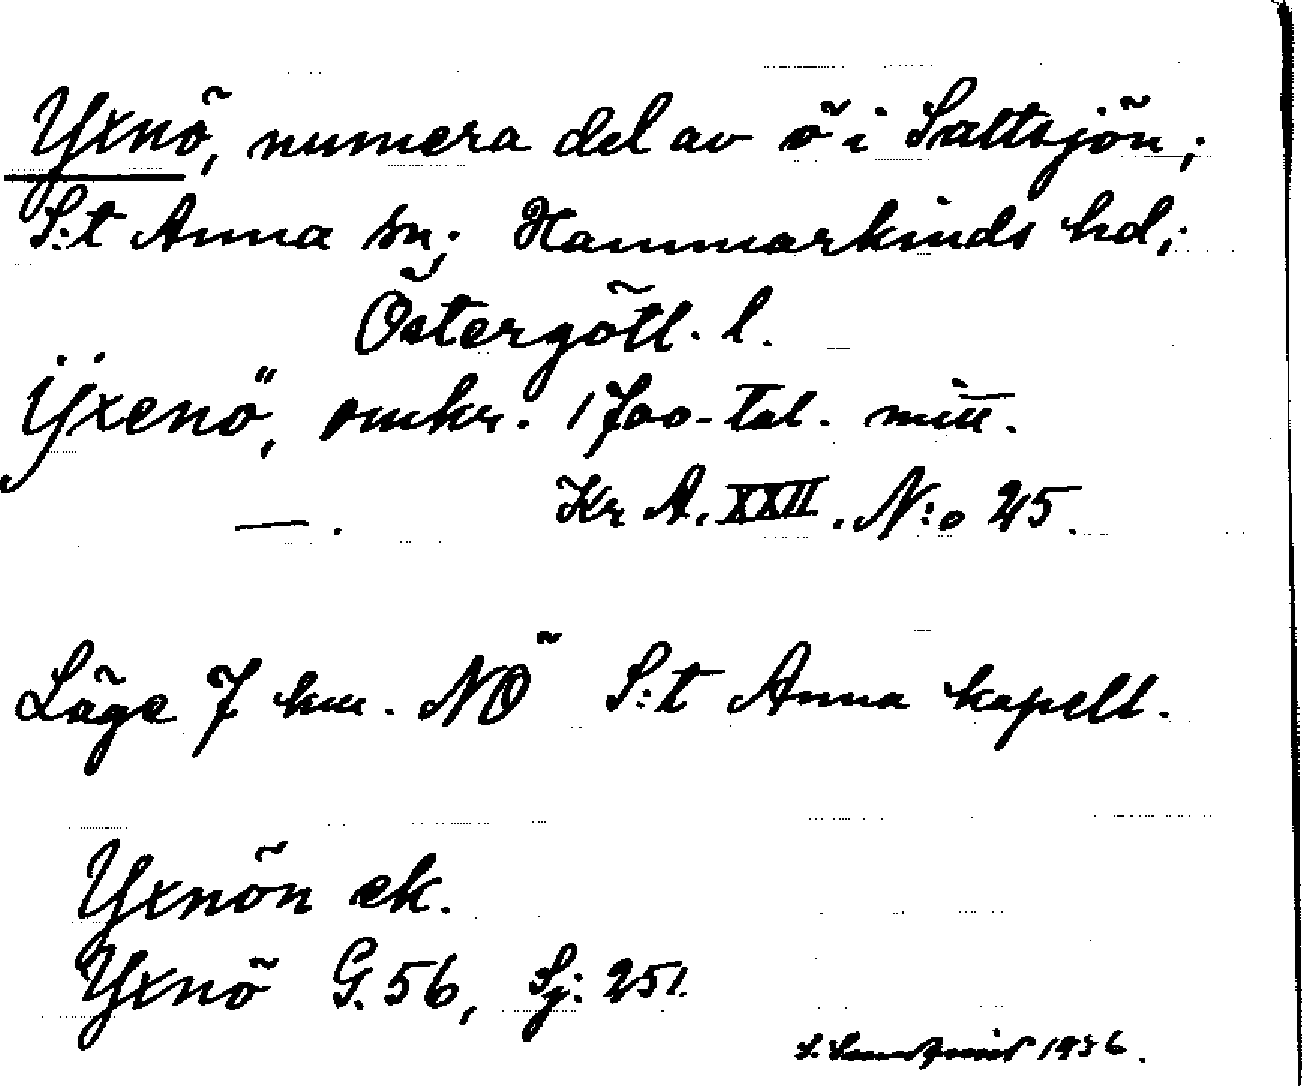 Yxnö, numera del av ö i Saltsjön;
S:t Anna sn; Hammarkinds hd;
Östergötl. l.
Ÿxenö, omkr. 1700-tal. mitt.
— . Kr A. XXII. N:o 25.
Läge 7 km. NO S:t Anna kapell.
Yxnön ek.
Yxnö G. 56, Sj: 251.
1936.